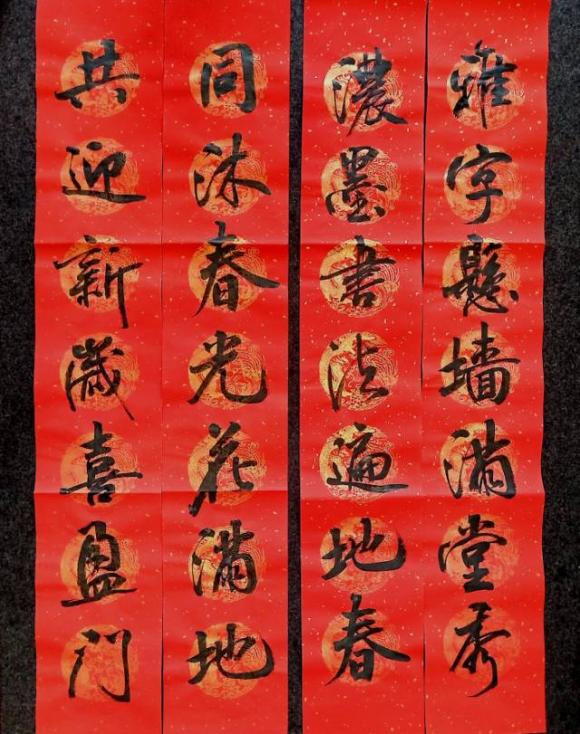 雅字懸墙满堂秀
濃墨書法遍地春
同沐春光花满地
共迎新歲喜盈门